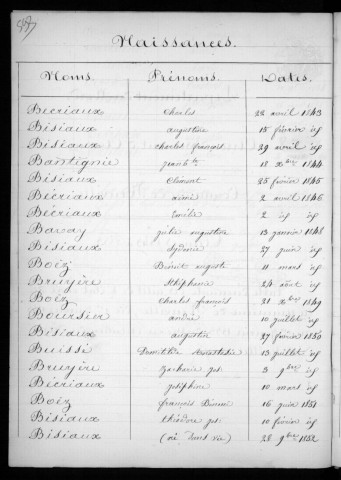 Naissances.
Noms. Prénoms. Dates.
Bécriaux Charles 22 avril 1843
Bisiaux augustine 15 février id
Bisiaux charles françois 29 avril id
Bantégnie 18 Xbre 1844
Bisiaux Clément 25 février 1845
Bécriaux 2 avril 1846
Bécriaux Emile 2 id id
Bavay julie augustine 13 janvier 1848
Bisiaux Sydonie 27 juin id
Boëz Benoit auguste 11 mars id
Bruyère Stéphanie 24 aout id
Boëz Charles françois 21 Xbre 1849
Boursier andré 10 juillet id
Bisiaux augustin 27 février 1850
Buissi Anastasie 13 juillet id
Bruyère Zacharie jph 3 9bre id
Bécriaux joséphine 10 mars id
Boëz françois Bienne 16 juin 1851
Bisiaux théodore jph 10 février id
Bisiaux (né sans vie) 28 9bre 1852